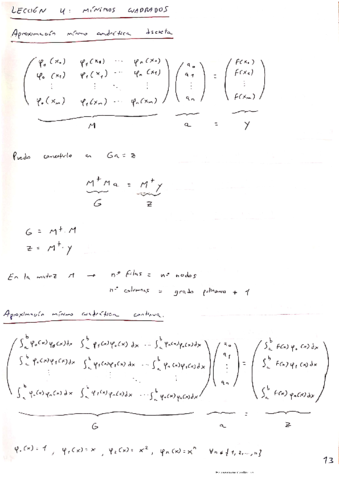 LECCIÓN 4: MÍNIMOS CUADRADOS
Aproximación mínimo cuadrática discreta
φ₀(x₀) φ₁(x₀) ... φₙ(x₀) a₀ f(x₀)
φ₀(x₁) φ₁(x₁) ... φₙ(x₁) a₁ = f(x₁)
⋮ ⋮ ⋱ ⋮ ⋮ ⋮
φ₀(xₘ) φ₁(xₘ) ... φₙ(xₘ) aₙ f(xₘ)
M a = Y
Puedo convertirlo en Ga = z
Mᵗ M a = Mᵗ y
G z
G = Mᵗ · M
z = Mᵗ · y
En la matriz M → nº filas = nº nodos
nº columnas = grado polinomio + 1
Aproximación mínimo cuadrática continua.
∫ₐᵇ φ₀(x)φ₀(x)dx ∫ₐᵇ φ₀(x)φ₁(x)dx ... ∫ₐᵇ φ₀(x)φₙ(x)dx a₀ ∫ₐᵇ f(x)φ₀(x)dx
∫ₐᵇ φ₁(x)φ₀(x)dx ∫ₐᵇ φ₁(x)φ₁(x)dx ... ∫ₐᵇ φ₁(x)φₙ(x)dx a₁ = ∫ₐᵇ f(x)φ₁(x)dx
⋮ ⋮ ⋱ ⋮ ⋮ ⋮
∫ₐᵇ φₙ(x)φ₀(x)dx ∫ₐᵇ φₙ(x)φ₁(x)dx ... ∫ₐᵇ φₙ(x)φₙ(x)dx aₙ ∫ₐᵇ f(x)φₙ(x)dx
G a = z
φ₀(x) = 1 , φ₁(x) = x , φ₂(x) = x² , φₙ(x) = xⁿ ∀n∈{1,2,...,n}
13